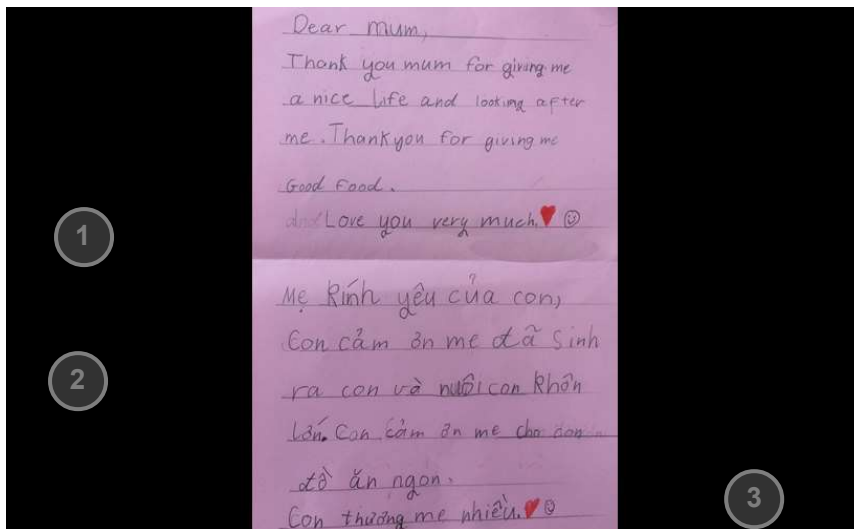 Dear mum,
Thank you mum for giving me
a nice life and looking after
me. Thankyou for giving me
Good Food.
and Love you very much.♥☺
Mẹ kính yêu của con,
Con cảm ơn mẹ đã sinh
ra con và nuôi con khôn
lớn. Con cảm ơn mẹ cho con
đồ ăn ngon.
Con thương mẹ nhiều.♥☺
1
2
3